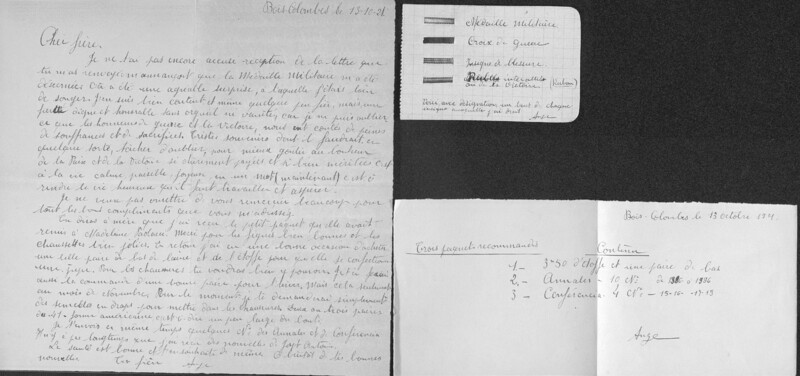 Bois-Colombes le 13-10-21
Cher frère,
Je ne t'ai pas encore accusé réception de la lettre que
tu m'as renvoyé m'annonçant que la Médaille Militaire m'a été
décernée. Ça a été une agréable surprise, à laquelle j'étais loin
de songer. J'en suis bien content et même quelque peu fier, mais une
digne et honorable sans orgueil ni vanité, car je ne puis oublier
ce que les honneurs de guerre et la Victoire, nous ont coûté de peines
de souffrances et de sacrifices. Tristes souvenirs dont il faudrait en
quelque sorte, tâcher d'oublier, pour mieux goûter au bonheur
de la Paix et de la Victoire si chèrement payées et si bien méritées
à la vie calme paisible joyeuse en un mot (maintenant) c'est à
rendre la vie humaine qu'il faut travailler et aspirer.
Je ne veux pas omettre de vous remercier beaucoup pour
tout les bons compliments que vous
Tu diras à mère que j'ai reçu le petit paquet qu'elle avait
remis à Madeleine. Merci pour les figues bien bonnes et les
chaussettes bien jolies. En retour j'ai eu une bonne occasion d'acheter
une belle paire de bas de laine et de l'étoffe pour qu'elle se confectionne
une jupe. Pour les chaussures tu voudras bien y pourvoir
la commande d'une bonne paire pour l'hiver, mais cela seulement
au mois de décembre. Pour le moment je te demanderai simplement
des semelles en draps pour mettre dans les chaussures
du 41 forme américaine c'est à dire un peu large du bout.
Je t'envoie en même temps quelques Nos des Annales et de Conférencia
Il y a longtemps que j'ai reçu des nouvelles de
La santé est bonne et je souhaite de même. A bientôt de tes bonnes
nouvelles. Ton frère Ange
Médaille Militaire
Croix de Guerre
Fourragère
Ruban interalliés (Ruban)
ou de la Victoire
Deux avec désignation un bout de chaque
Ange
Bois-Colombes le 13 Octobre 1921.
Trois paquets recommandés
Contenu
1 - 3m50 d'étoffe et une paire de bas
2 - Annales - 10 Nos de
3 - Conferencia 4 Nos -
Ange